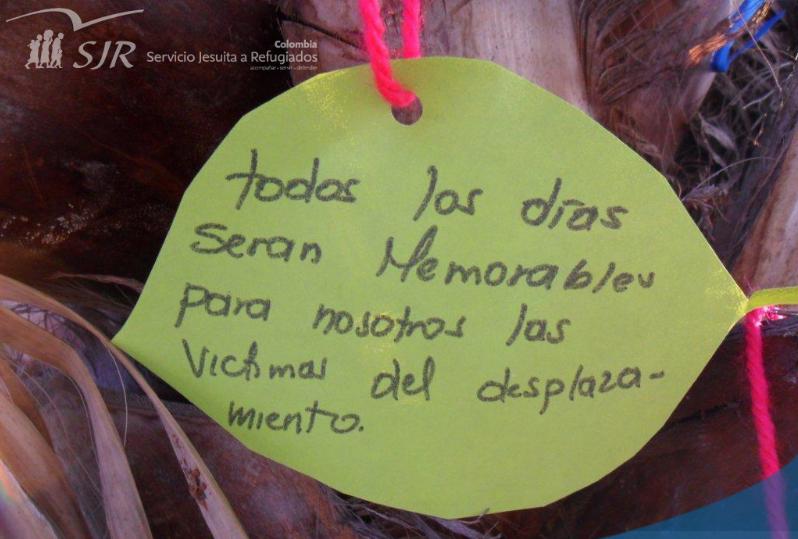 SJR
Colombia
Servicio Jesuita a Refugiados
acompañar • servir • defender
todos los días
seran Memorables
para nosotros las
Victimas del desplaza-
miento.